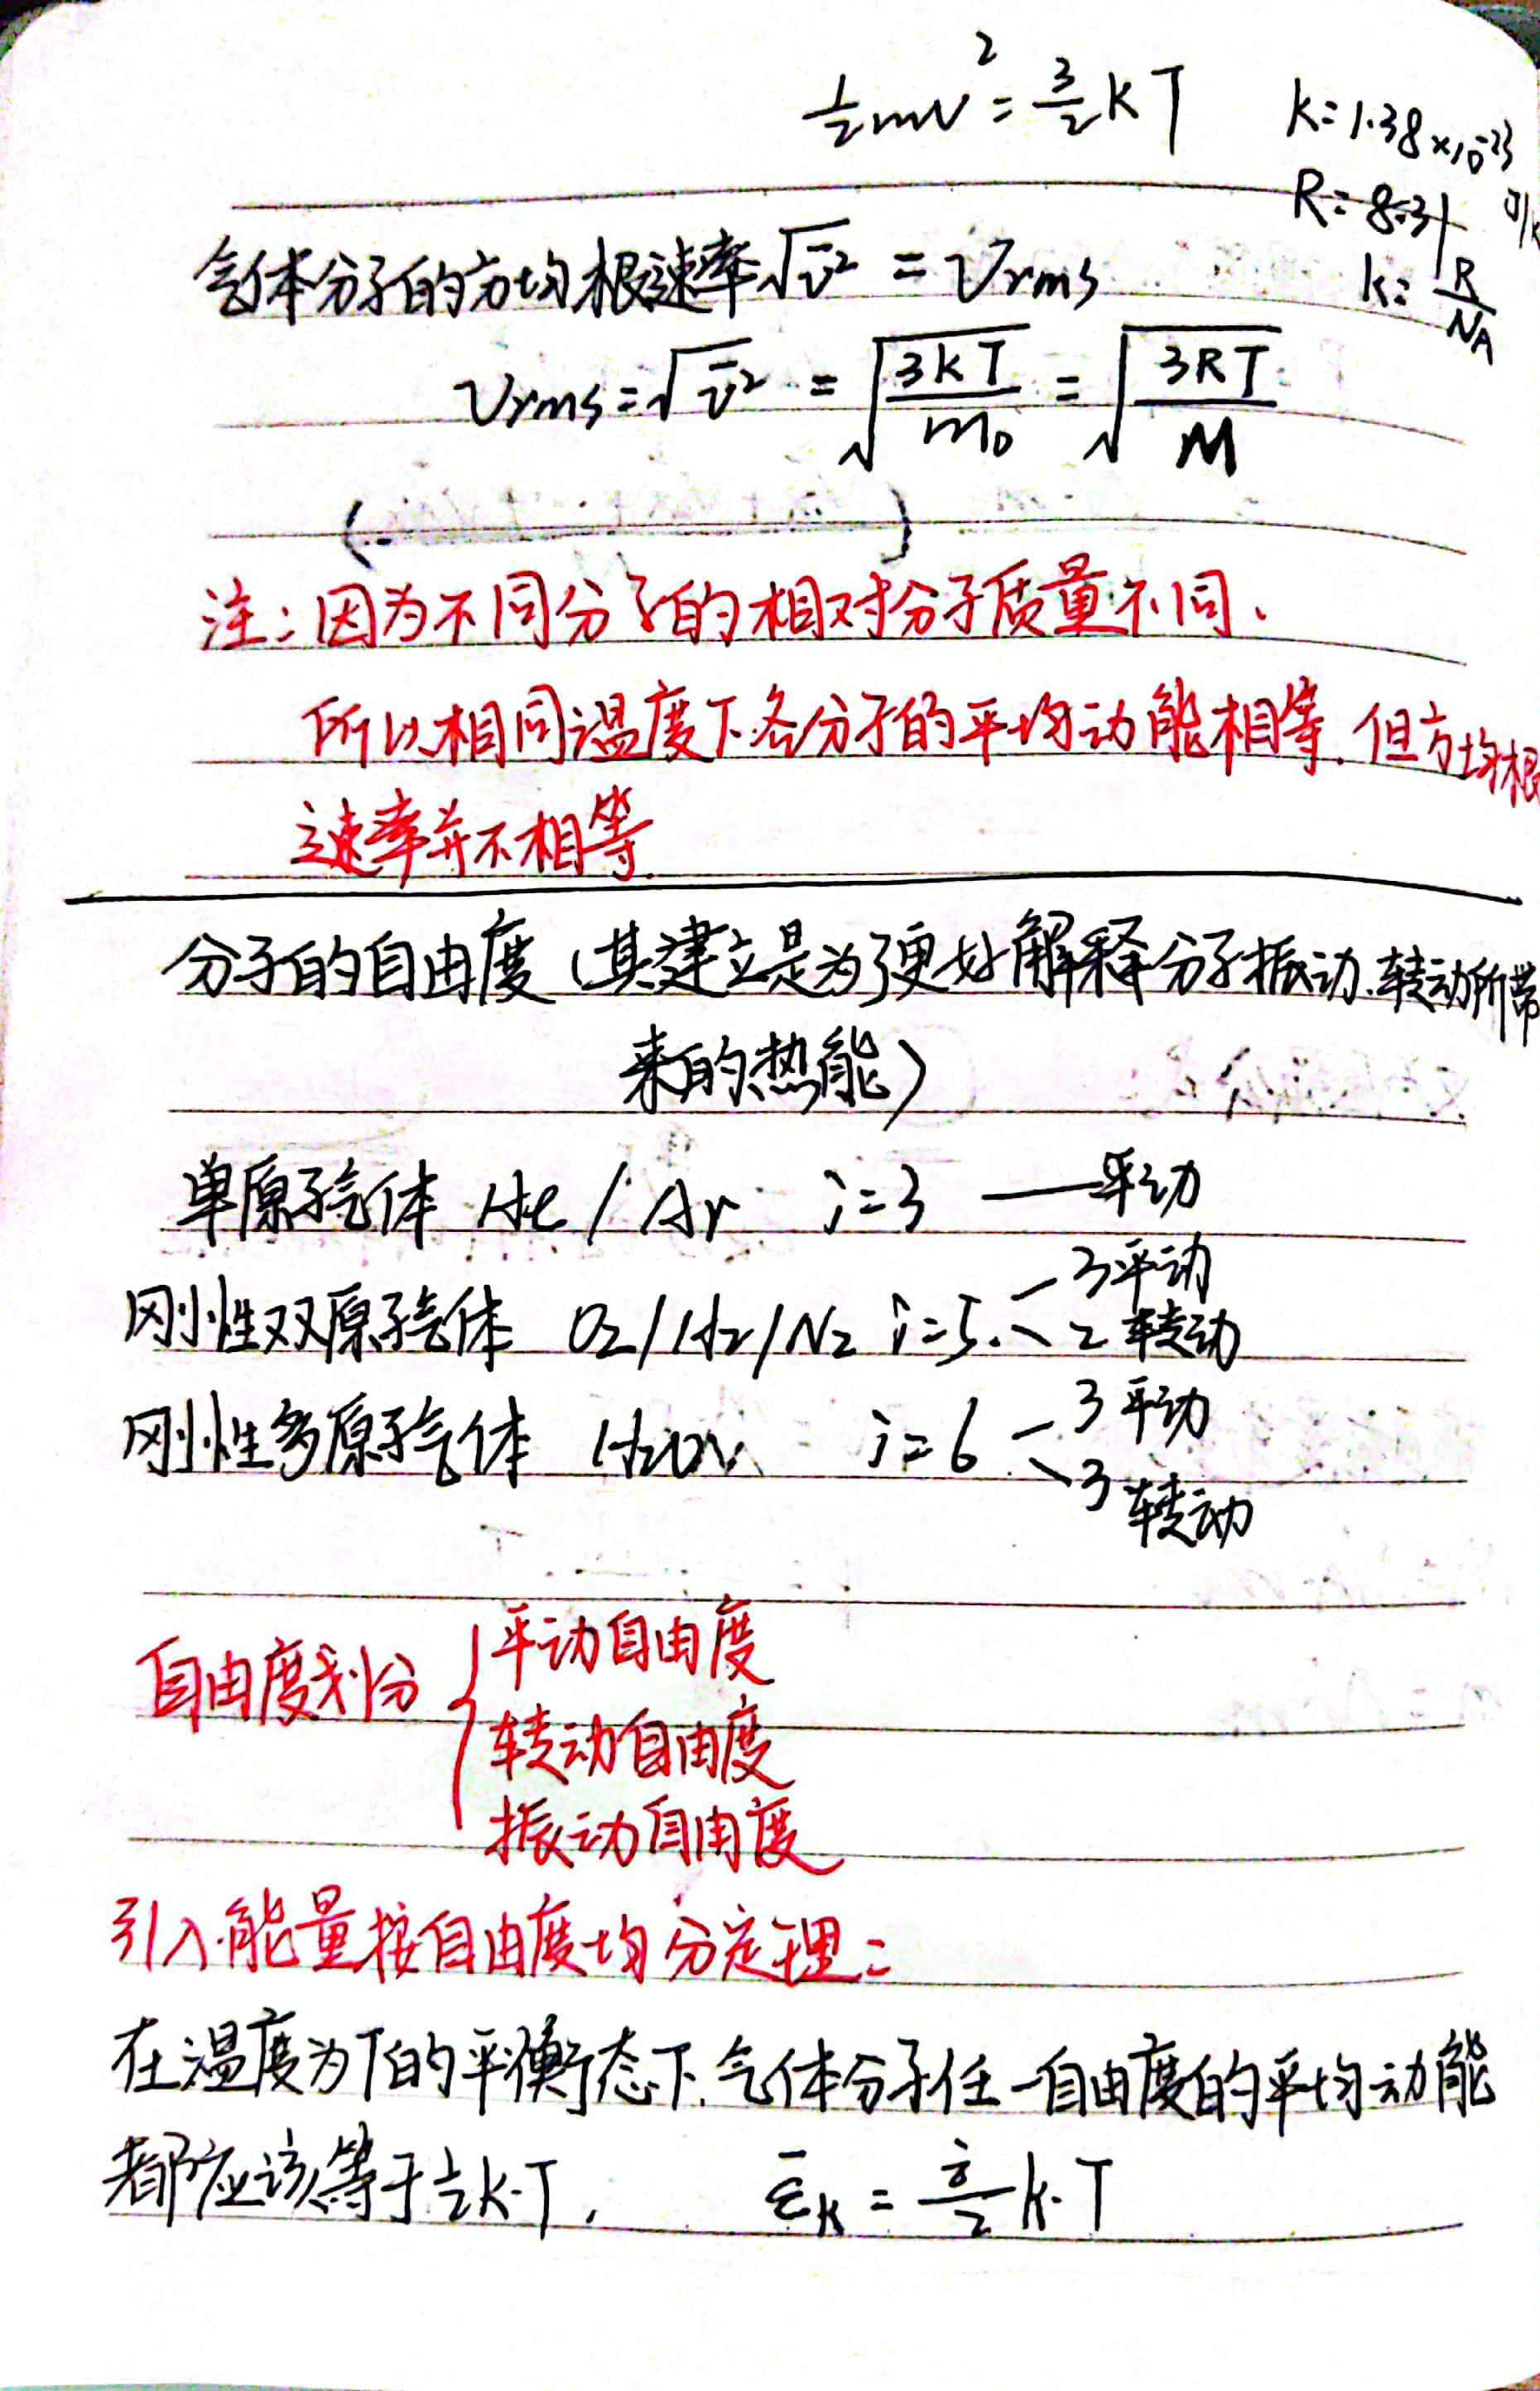 ½mv² = 3/2 kT  k=1.38×10⁻²³ J/k
R=8.31
k=R/NA
气体分子的方均根速率√v̄² = Vrms
Vrms=√v̄² = √(3kT/m₀) = √(3RT/M)
( )
注:因为不同分子的相对分子质量不同、
所以相同温度下.各分子的平均动能相等.但方均根
速率并不相等.
分子的自由度(其建立是为了更好解释分子振动.转动所带
来的热能)
单原子气体 He / Ar i=3 ——平动
刚性双原子气体 O₂/H₂/N₂ i=5. 3平动
2转动
刚性多原子气体 H₂O i=6 3平动
3转动
自由度划分 { 平动自由度
转动自由度
振动自由度
引入能量按自由度均分定理:
在温度为T的平衡态下.气体分子任一自由度的平均动能
都应该等于½k·T. ε̄k = i/2 k·T